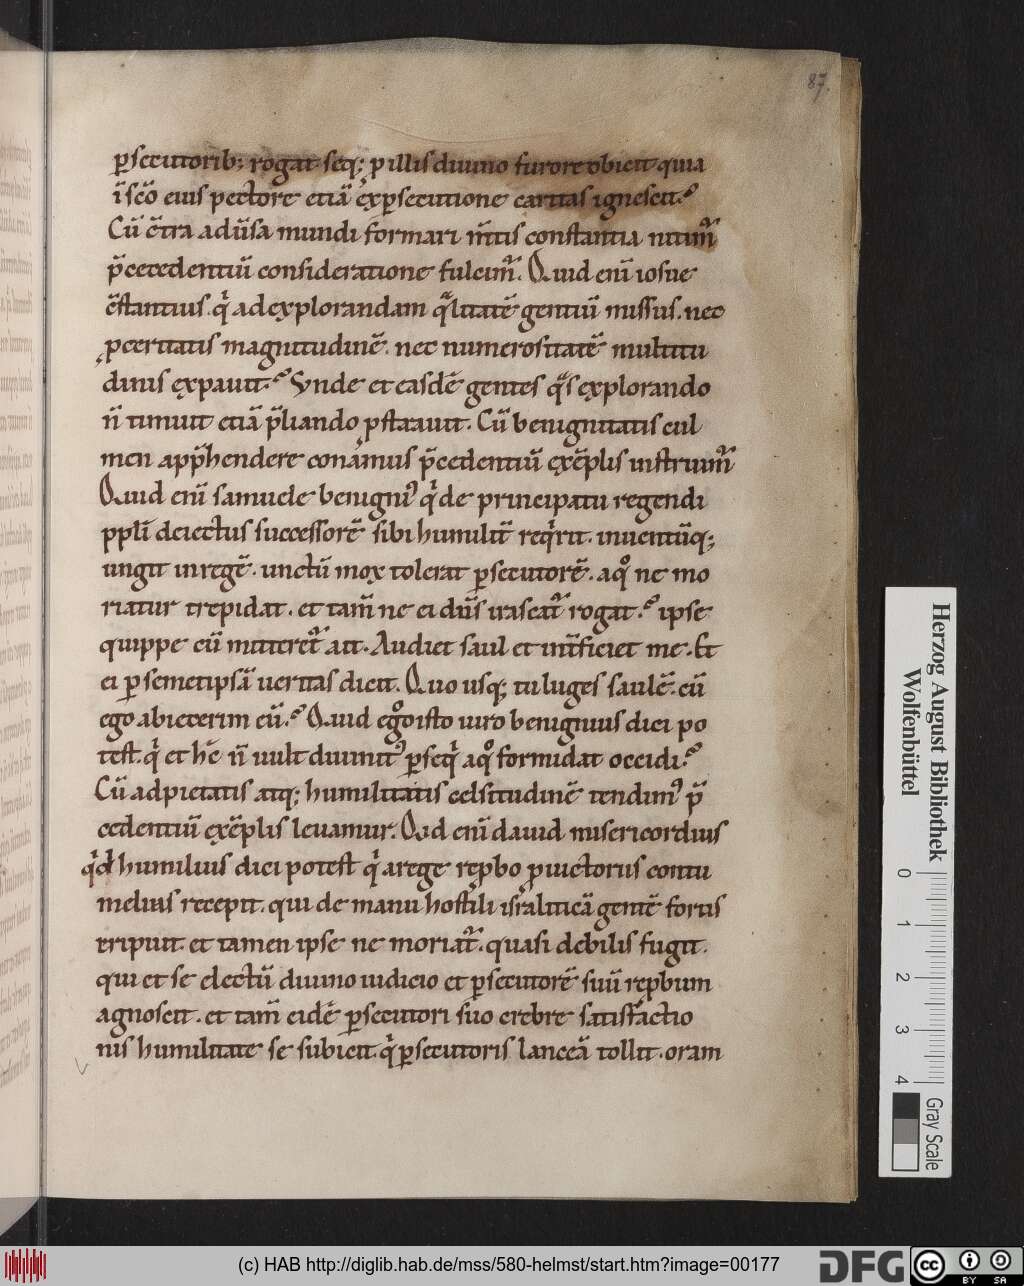 87.
p̱secutorib; rogat seq; p illis diuino furore obicit quia
ĩ scõ eius pectore etiã exp̱secutione caritas ignescit.
Cũ c̃tra adũsa mundi formari m̃tis constantia nitim̃
p̃cedentiũ consideratione fulcim̃. Quid enĩ iosue
c̃stantius. qͥ ad explorandam qᷓlitatẽ gentiũ missus. nec
pceritatis magnitudinẽ. nec numerositatẽ multitu
dinis expauit. Vnde et easdẽ gentes qᷓs explorando
ñ timuit etiã p̃liando pstrauit. Cũ benignitatis cul
men app̃hendere conamus p̃cedentiũ exẽplis instruim̃
Quid enĩ samuele benigni᷒ qͥ de principatu regendi
ppĩi deiectus successorẽ sibi humilit̃ reqͥrit. inuentũq;
ungit in regẽ. unctũ mox tolerat p̱secutorẽ. a qͦ ne mo
riatur trepidat. et tam̃ ne ei dñs irascat̃ rogat. ipse
quippe cũ mitteret̃ ait. Audiet saul et int̃ficiet me. Et
ei p̱ semetipsã ueritas dicit. Quo usq; tu luges saulẽ. cũ
ego abiecerim eũ. Quid eͦgo isto uiro benignius dici po
test. qͥ et hẽ ñ uult diuinit᷒ p̱seqͥ a qͦ formidat occidi.
Cũ ad pietatis atq; humilitatis celsitudinẽ tendim᷒ p̃
cedentiũ exẽplis leuamur. Qid enĩ dauid misericordius
qͥd humilius dici potest qͥ a rege repbo p uictoriis contu
melias recepit. qui de manu hostili isr̃aliticã gentẽ fortis
eripuit et tamen ipse ne moriat̃. quasi debilis fugit.
qui et se electũ diuino iudicio et p̱secutorẽ suũ repbum
agnoscit. et tam̃ eidẽ p̱secutori suo crebre satisfactio
nis humilitate se subicit. qͥ p̱secutoris lanceã tollit. oram
Herzog August Bibliothek
Wolfenbüttel
0 1 2 3 4
Gray Scale
(c) HAB http://diglib.hab.de/mss/580-helmst/start.htm?image=00177
DFG
cc BY SA